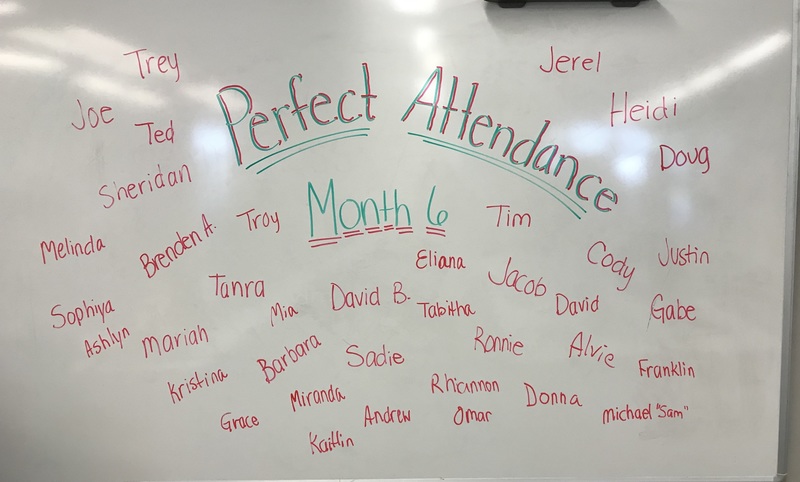 Perfect Attendance
Month 6
Trey
Jerel
Joe
Heidi
Ted
Doug
Sheridan
Troy
Tim
Melinda
Brenden A.
Eliana
Cody
Justin
Tanra
Jacob
Sophiya
Mia
David B.
Tabitha
David
Gabe
Ashlyn
Mariah
Barbara
Sadie
Ronnie
Alvie
Franklin
Kristina
Miranda
Rhiannon
Donna
Grace
Andrew
Omar
michael "Sam"
Kaitlin